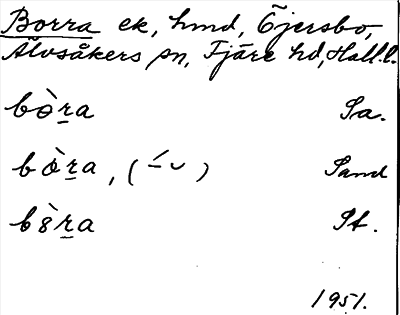 Borra ek, hmd, Öjersbo,
Älvsåkers sn, Fjäre hd, Hall. l.
bòra Sa.
bòra, (–́ ᴗ) Sand
b8̀ra St.
1951.